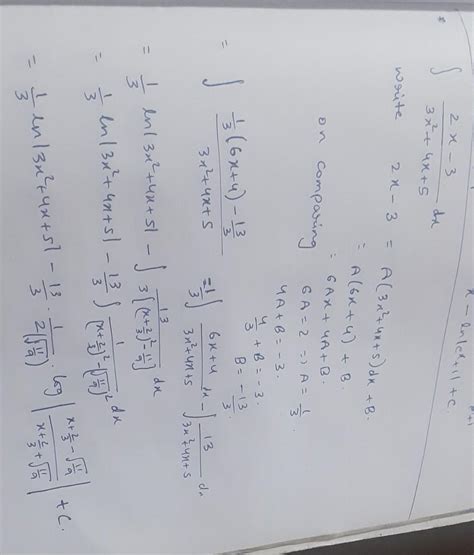 x - 2 ln|x+1| + c.
* ∫ (2x-3)/(3x²+4x+5) dx
write 2x-3 = A(3x²+4x+5)dx + B.
= A(6x+4) + B
= 6Ax + 4A + B.
on comparing 6A = 2 => A = 1/3.
4A + B = -3.
4/3 + B = -3.
B = -13/3.
= ∫ (1/3(6x+4) - 13/3)/(3x²+4x+5) = 1/3 ∫ (6x+4)/(3x²+4x+5) dx - ∫ 13/(3x²+4x+5) dx
= 1/3 ln|3x²+4x+5| - ∫ 13/(3[(x+2/3)² - 11/9]) dx
= 1/3 ln|3x²+4x+5| - 13/3 ∫ 1/((x+2/3)² - (√11/9)²) dx
= 1/3 ln|3x²+4x+5| - 13/3 . 1/(2(√11/9)) . log |(x+2/3 - √11/9)/(x+2/3 + √11/9)| + c.